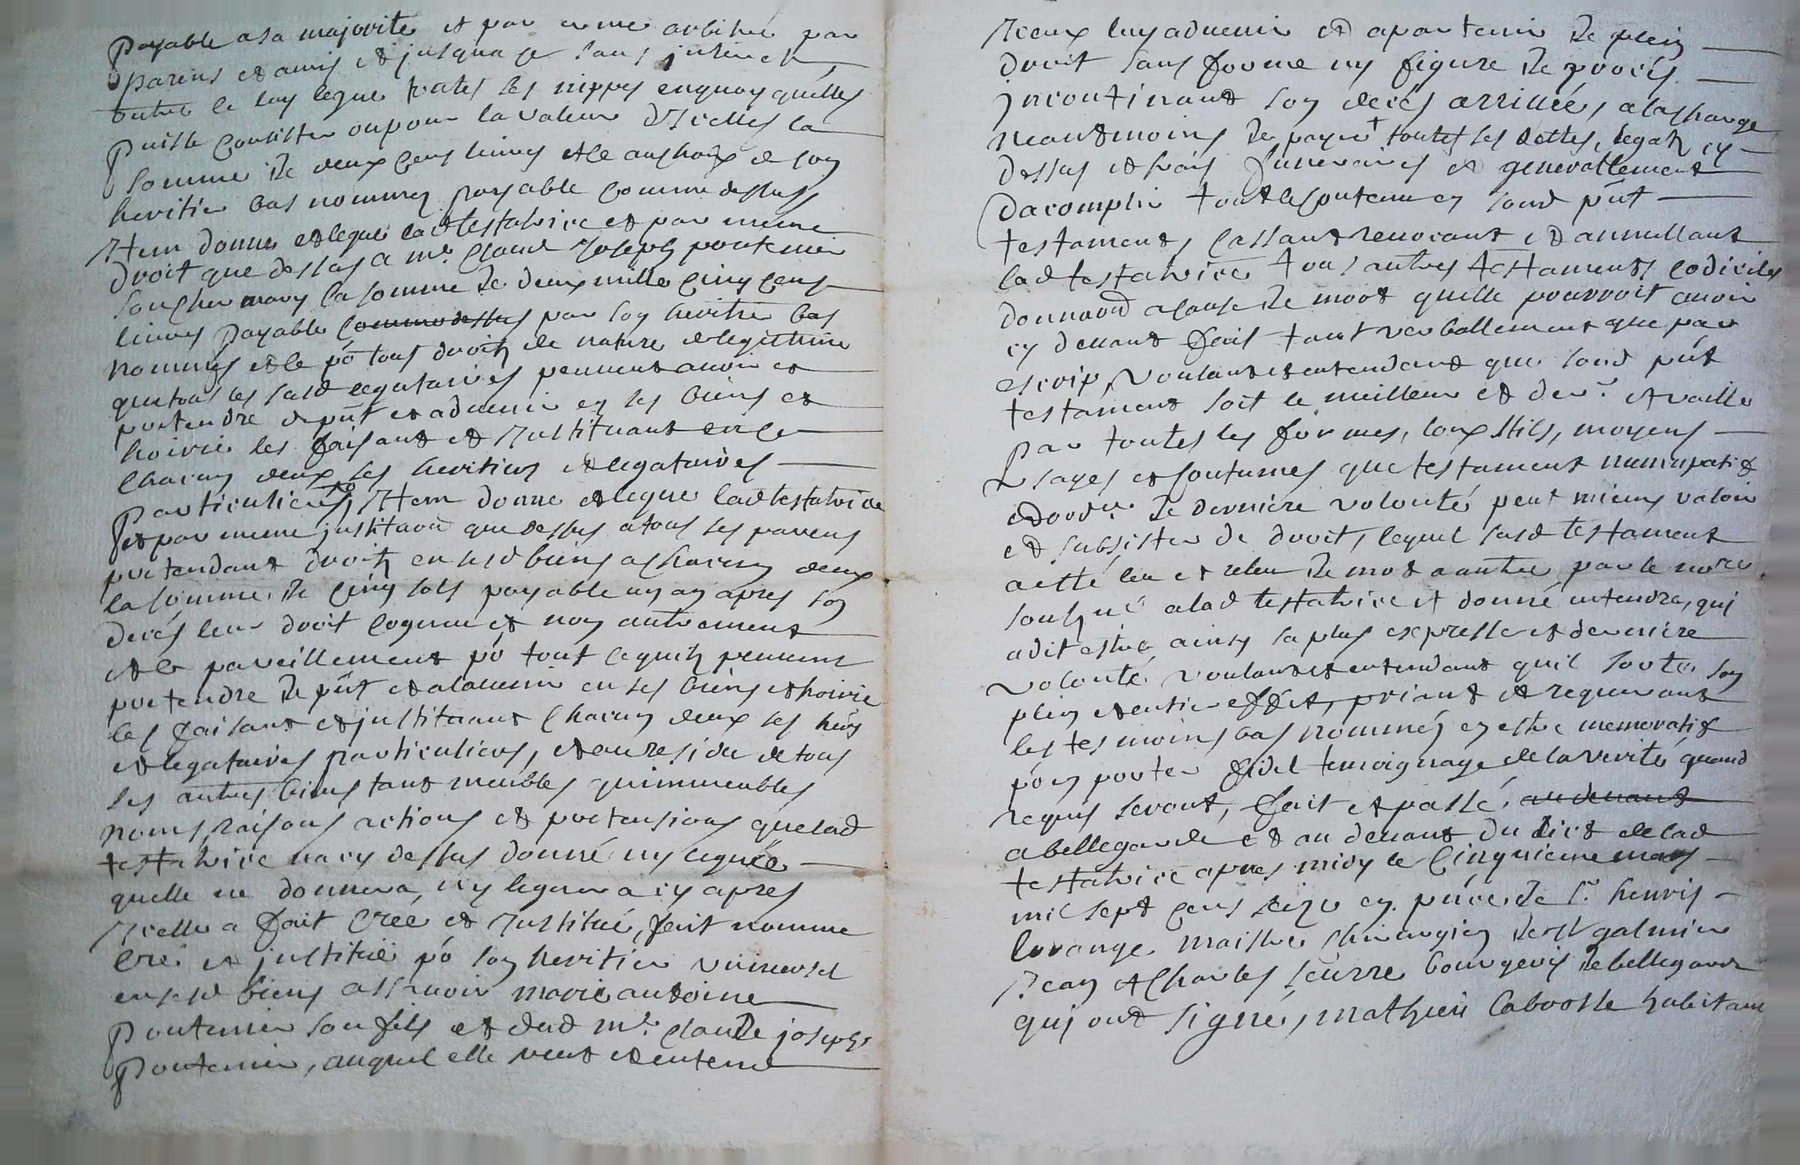 payable a sa majorité et par comme arbitré par
parens et amis et jusqua ce sans jnterest,
outre ce luy legue toutes les nippes enquoy quelles
puisse consister ou pour la valeur d'Icelles la
somme de deux cens livres et le au choix de son
heritier bas nommez payable comme dessus
Item donne et legue lad testatrice et par meme
droit que dessus a mr. Claude Joseph pontenier
son cher mary la somme de deux mille cinq cens
livres payable commedessus par son heritier bas
nommés et ce po tous droitz de nature et legittime
que tous les susd legataires peuvent avoir et
pretendre de pnt et advenir en ses biens et
hoirie les faisant et Instituant en ce
chacun deux ses heritiers et legataires
particuliers, Item donne et legue lad testatrice
et par meme justitaon que dessus a tous ses parens
pretendants droitz en sesd biens a chacun deux
la somme de cinq sols payable un an apres son
deces leur droit cognu et non autrement
et ce pareillement po tout ce quilz peuvent
pretendre de pnt et aladvenir en ses biens et hoirie
les faisant et jnstituant chacun deux ses hers
et legataires particuliers, et au residu de tous
ses autres biens tant meubles quimmeubles
noms, raisons actions et pretensions que lad
testatrice na cy dessus donné ny legué
quelle ne donnera, ny leguera cy apres
Icelle a fait creé et Institué, fait nomme
creé et jnstitue po son heritier universel
en sesd biens assavoir marie antoine
Pontenier son fils et dud mr. Claude joseph
Pontenier, auquel elle veut et entend
Iceux luy advenir et apartenir de plein
droit sans forme ny figure de procés
Incontinant son decés arrivée, a la charge
neantmoins de payer + toutes ses dettes, legatz cy
dessus et frais funeraires et generallement
dacomplir tout le contenu en sond pnt
testament, cassant revocant et annullant
lad testatrice tous autres testaments codiciles
donnaon a cause de mort quelle pourroit avoir
cy devant fait tant verballement que par
escrip, voulant et entendant que sond pnt
testament soit le meilleur et der. et vaille
par toutes les formes, loix stils, moyens
Usages et coutumes que testament nuncupatif
et ordce. de derniere volonté peut mieux valoir
et subsister de droit, lequel susd testament
a esté leu et releu de mot a autre par le notre
soubzné a lad testatrice et donné entendre, qui
a dit estre ainsy sa plus expresse et derniere
volonté, voulant et entendant quil sorte son
plein et entier effet, priant et requerant
les tesmoins bas nommés en estre memoratif
po en porter fidel temoignage de la verité quand
requis seront, fait et passé au devant
a bellegarde et au devant du lict de lad
testatrice apres midy le cinquieme mars
mil sept cens seize en pnce de Sr. henris
lorange maistre chirurgien de St galmier
Jean et Charles seurre bourgeois de bellegarde
qui ont signé, mathieu laboorle habitant